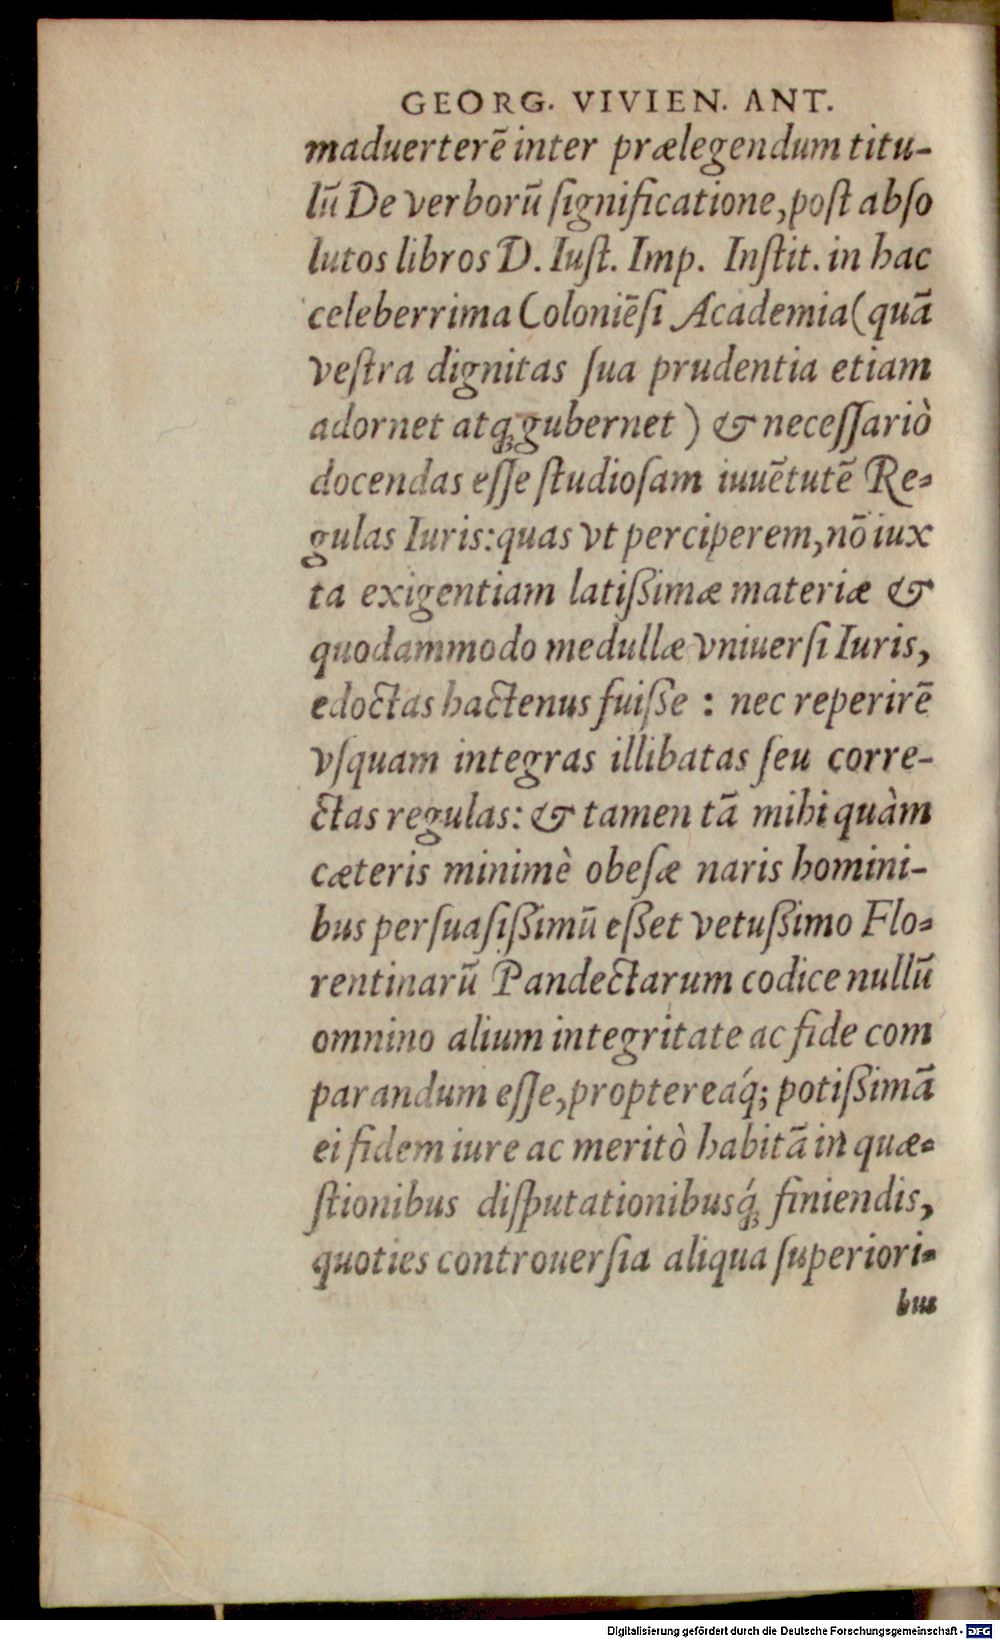 GEORG. VIVIEN. ANT.
maduerterē inter prælegendum titu-
lū De verborū ſignificatione, poſt abſo
lutos libros D. Iuſt. Imp. Inſtit. in hac
celeberrima Coloniēſi Academia (quā
veſtra dignitas ſua prudentia etiam
adornet atq́; gubernet) & neceſſariò
docendas eſſe ſtudioſam iuuētutē Re-
gulas Iuris: quas vt perciperem, nō iux
ta exigentiam latißimæ materiæ &
quodammodo medullæ vniuerſi Iuris,
edoctas hactenus fuiſſe : nec reperirē
vſquam integras illibatas ſeu corre-
ctas regulas: & tamen tā mihi quàm
cæteris minimè obeſæ naris homini-
bus perſuaſißimū eſſet vetuſſimo Flo-
rentinarū Pandectarum codice nullū
omnino alium integritate ac fide com
parandum eſſe, proptereaq́; potißimā
ei fidem iure ac meritò habitā in quæ-
ſtionibus diſputationibusq́; finiendis,
quoties controuerſia aliqua ſuperiori-
bus
Digitalisierung gefördert durch die Deutsche Forschungsgemeinschaft - DFG